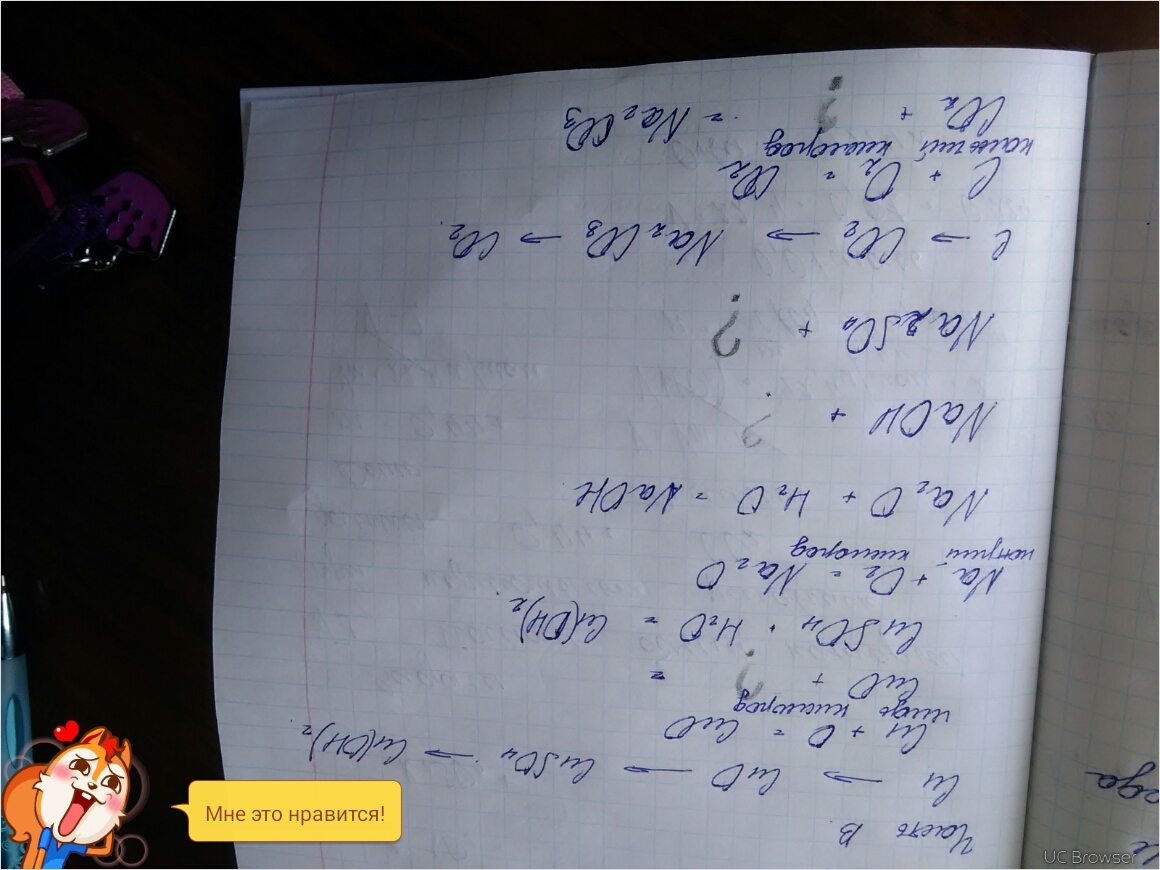 Часть В
Cu → CuO → CuSO4 → Cu(OH)2
Cu + O = CuO
медь кислород
CuO + ? =
CuSO4 + H2O = Cu(OH)2
Na + O2 = Na2O
натрий кислород
Na2O + H2O = NaOH
NaOH + ?
Na2SO4 + ?
C → CO2 → Na2CO3 → CO2
C + O2 = CO2
кальций кислород
CO2 + ? = Na2CO3
Мне это нравится!
UC Browser